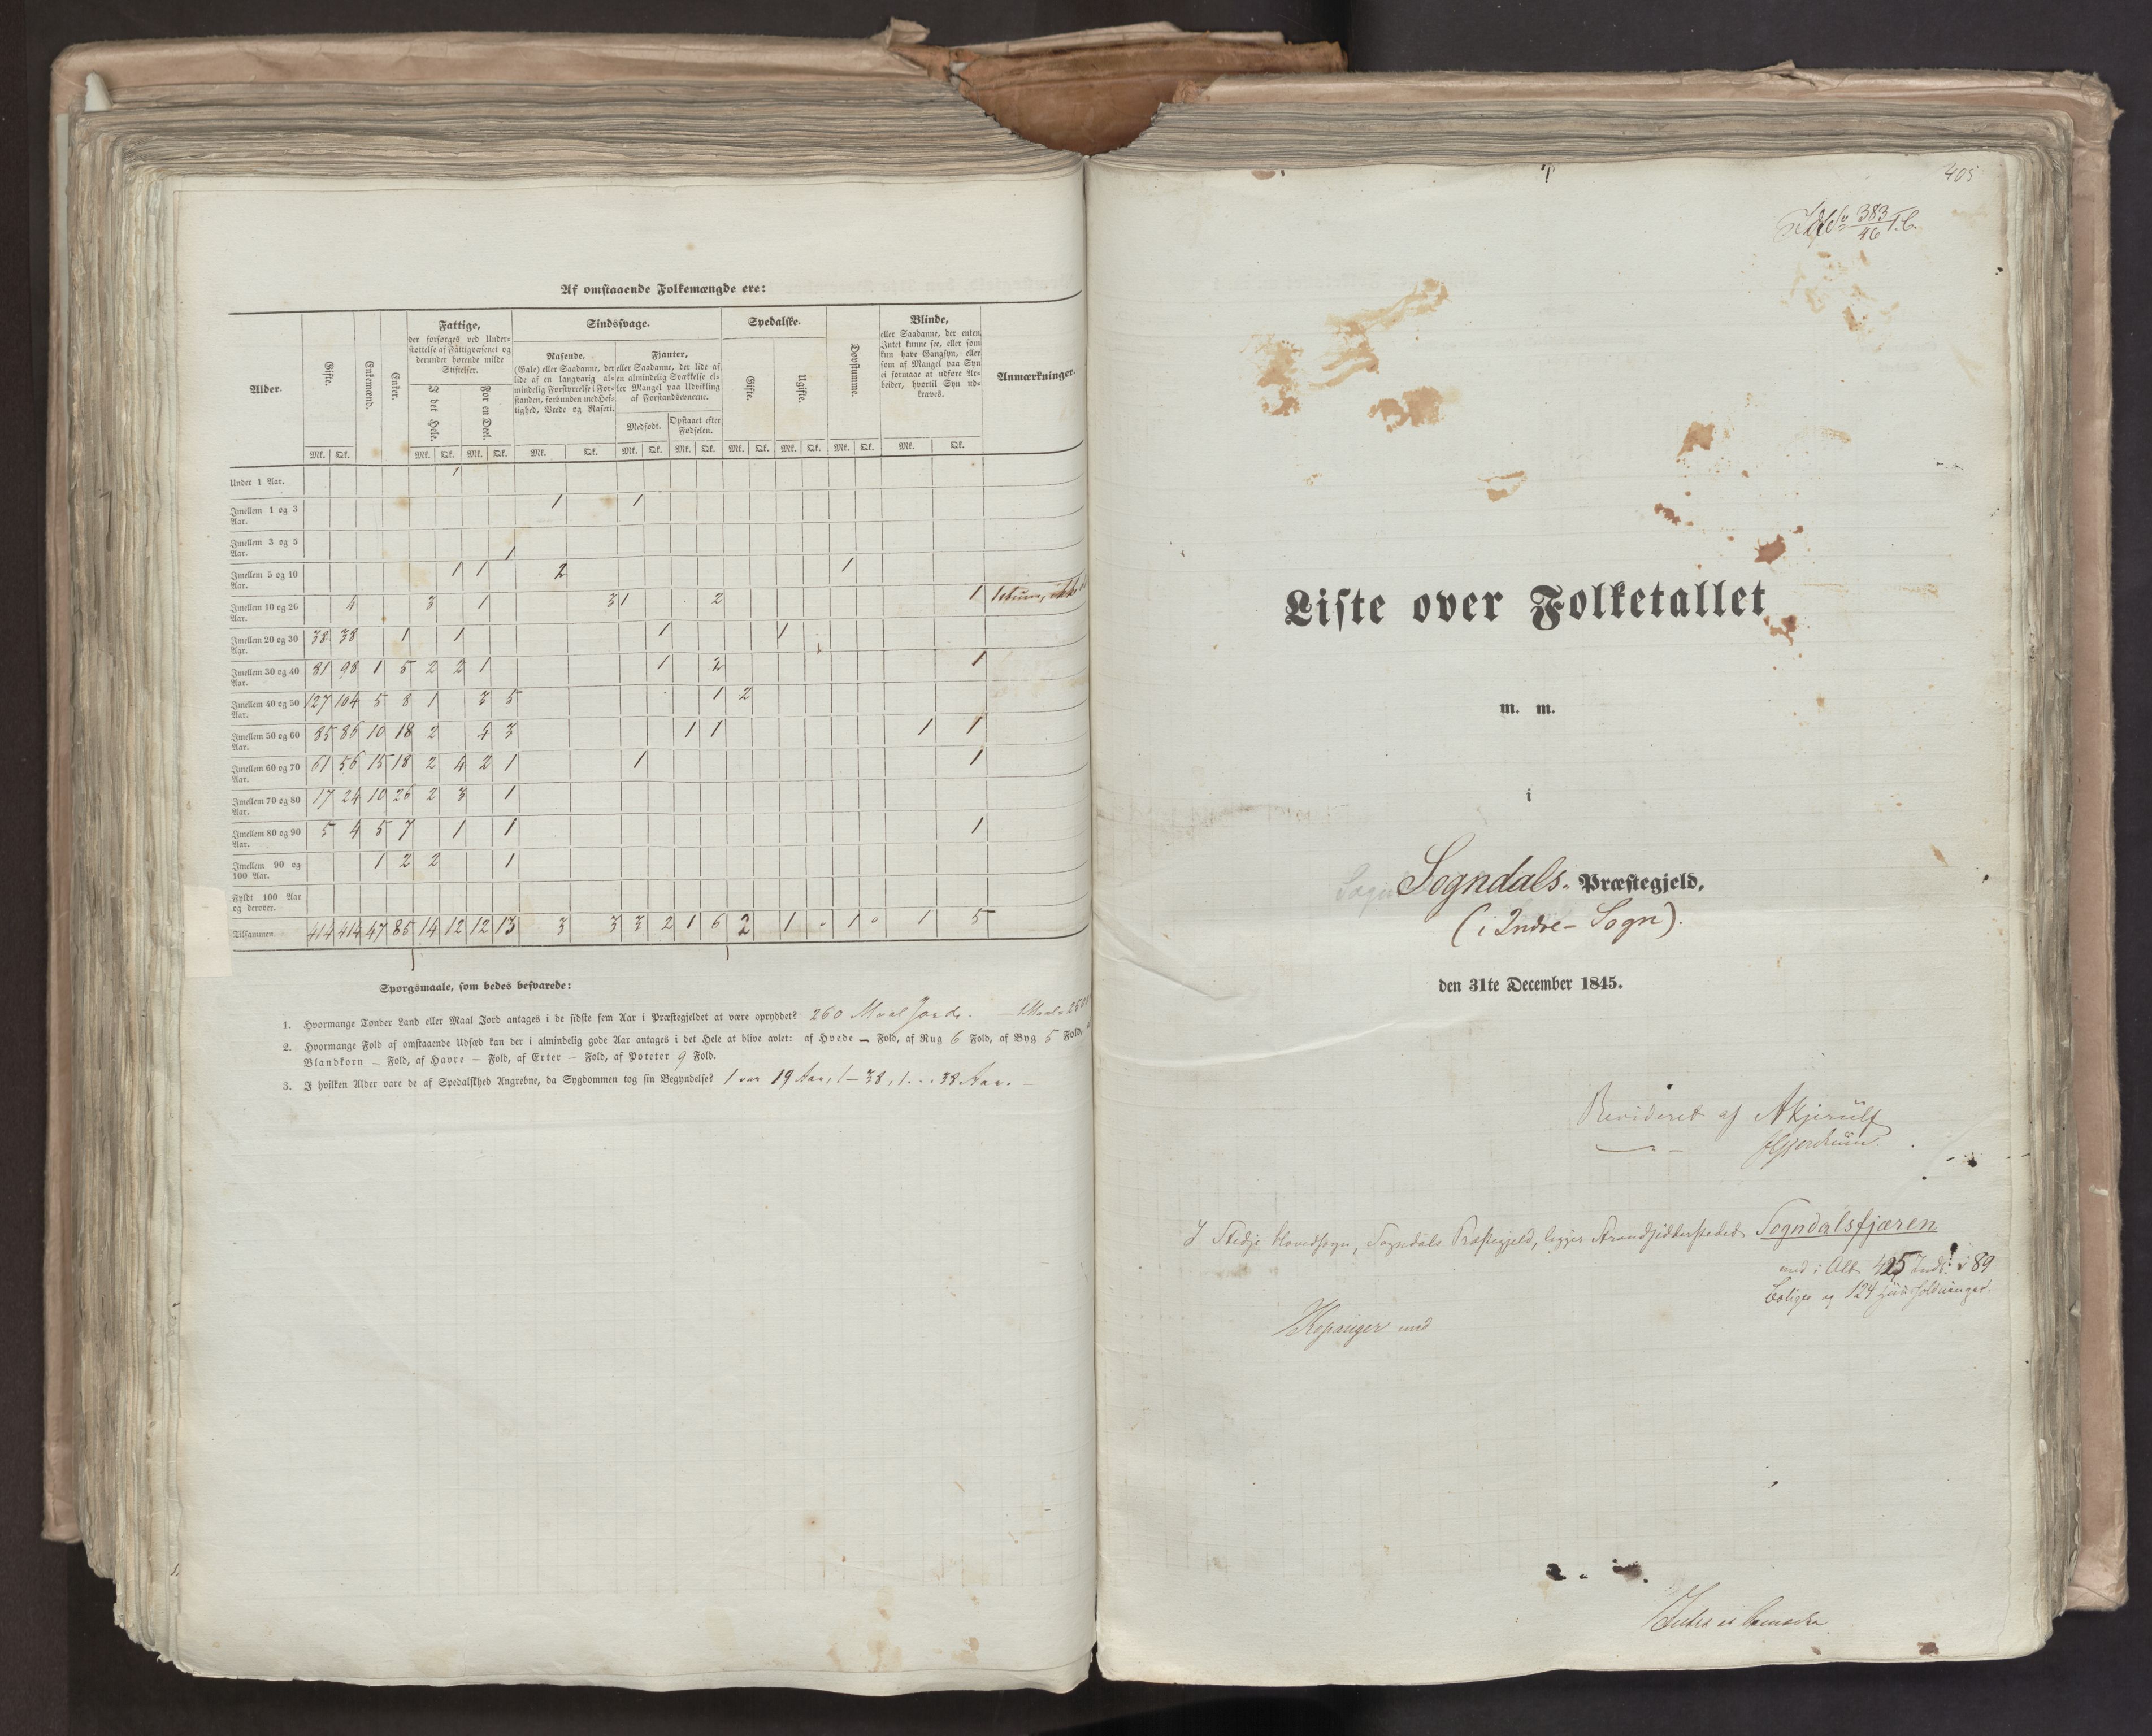 Af omstaaende Folkemængde ere:
Alder.
Gifte.
Enkemænd.
Enker.
Fattige,
der forsørges ved Under-
støttelse af Fattigvæsenet og
derunder hørende milde
Stiftelser.
I det Hele.
For en Deel.
Sindssvage.
Rasende.
(Gale) eller Saadanne, der
lide af en langvarig al-
mindelig Forstyrrelse i For-
standen, forbunden med Hef-
tighed, Vrede og Raseri.
Fjanter,
eller Saadanne, der lide af
en almindelig Svækkelse el-
ler Mangel paa Udvikling
af Forstandsevnerne.
Medfødt.
Opstaaet efter
Fødselen.
Spedalske.
Gifte.
Ugifte.
Døvstumme.
Blinde,
eller Saadanne, der enten
Intet kunne see, eller som
kun have Gangsyn, eller
som af Mangel paa Syn
ei formaae at udføre Ar-
beider, hvortil Syn ud-
kræves.
Anmærkninger.
Mk. Qk. Mk. Qk. Mk. Qk. Mk. Qk. Mk. Qk. Mk. Qk. Mk. Qk. Mk. Qk. Mk. Qk. Mk. Qk.
Under 1 Aar. 1
Imellem 1 og 3 Aar. 1 1
Imellem 3 og 5 Aar. 1
Imellem 5 og 10 Aar. 1 1 2 1
Imellem 10 og 20 Aar. 4 3 1 3 1 2 1
Imellem 20 og 30 Aar. 38 38 1 1 1 1
Imellem 30 og 40 Aar. 81 98 1 5 2 2 1 1 2 1
Imellem 40 og 50 Aar. 127 104 5 8 1 3 5 1 2
Imellem 50 og 60 Aar. 85 86 10 18 2 4 3 1 1 1 1
Imellem 60 og 70 Aar. 61 56 15 18 2 4 2 1 1 1
Imellem 70 og 80 Aar. 17 24 10 26 2 3 1
Imellem 80 og 90 Aar. 5 4 5 7 1 1 1
Imellem 90 og 100 Aar. 1 2 2 1
Fyldt 100 Aar og derover.
Tilsammen 414 414 47 85 14 12 12 13 3 3 3 2 1 6 2 1 - 1 0 1 5
Spørgsmaale, som bedes besvarede:
1. Hvormange Tønder Land eller Maal Jord antages i de sidste fem Aar i Præstegjeldet at være opryddet? 260 Maal Jord.
2. Hvormange Fold af omstaaende Udsæd kan der i almindelig gode Aar antages i det Hele at blive avlet: af Hvede – Fold, af Rug 6 Fold, af Byg 5 Fold,
Blandkorn – Fold, af Havre – Fold, af Erter – Fold, af Poteter 9 Fold.
3. I hvilken Alder vare de af Spedalskhed Angrebne, da Sygdommen tog sin Begyndelse? 1 var 19 Aar, 1 – 38, 1 . . . 38 Aar. –
405
383
46
Liste over Folketallet
m. m.
i
Sogndals. Præstegjeld,
(i Indre-Sogn).
den 31te December 1845.
Revideret af AKjerulf
I Stedje Hovedsogn, Sogndals Præstegjeld, ligger Strandsidderstedet Sogndalsfjæren
med i Alt 425 Indb: i 89
Boliger og 124 Huusholdninger.
med